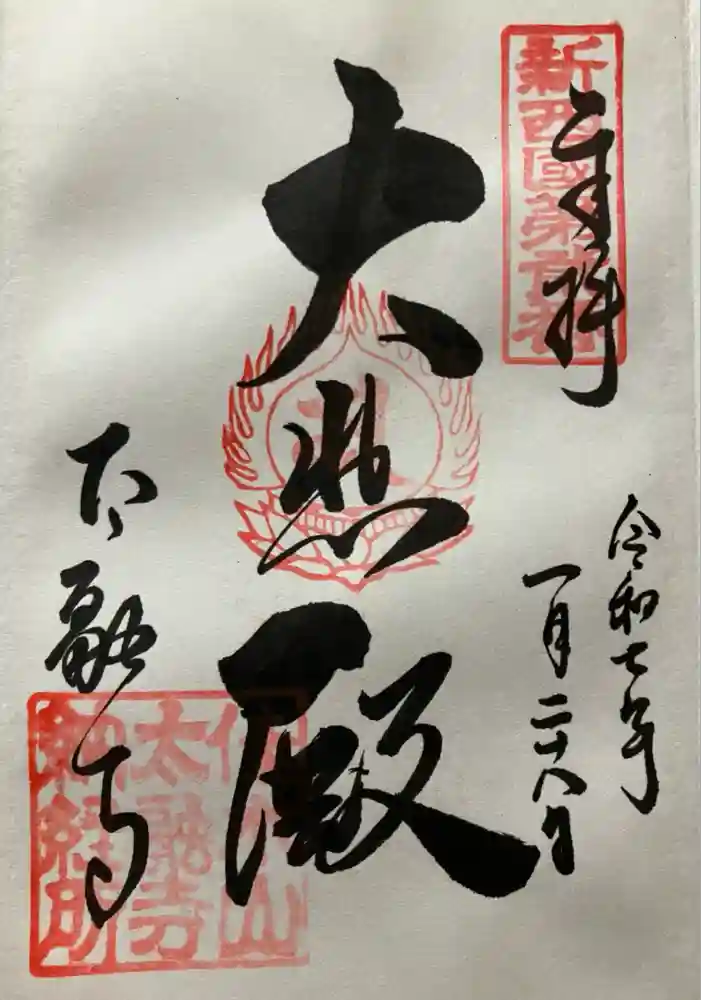 新西國第弐番
奉拝
令和七年
一月二十八日
大悲殿
太融寺
佳木山
太融寺
納経印